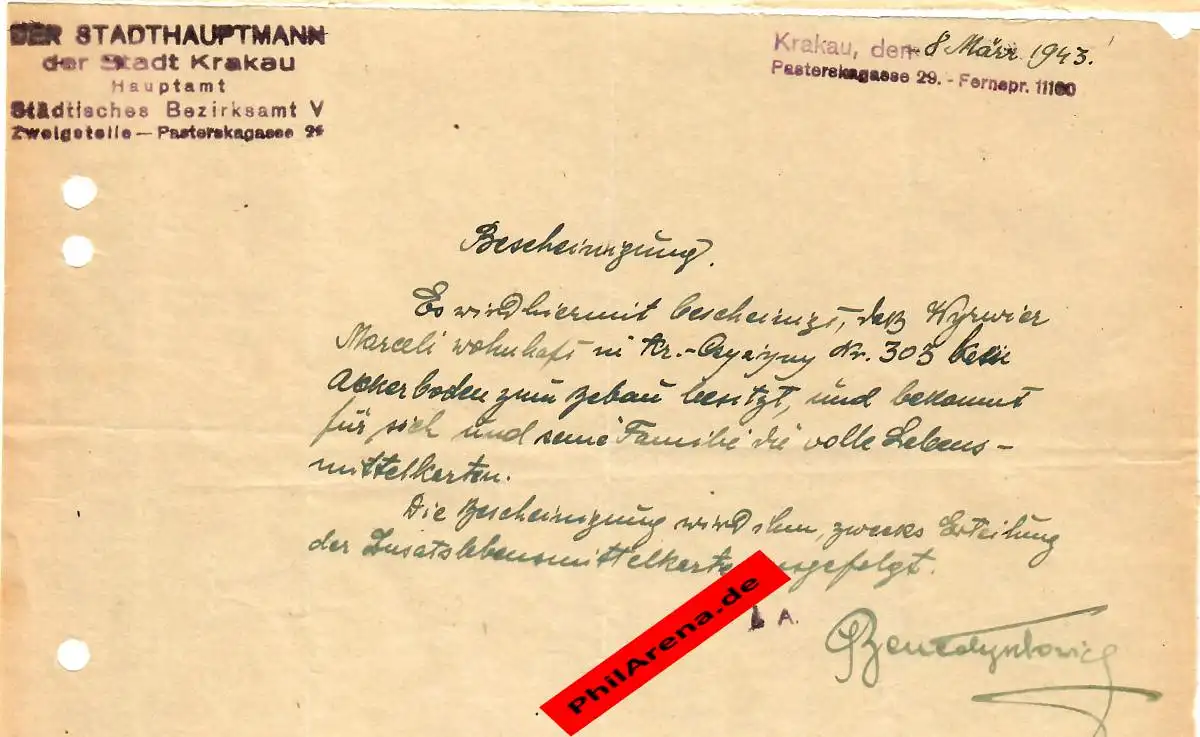 DER STADTHAUPTMANN
der Stadt Krakau
Hauptamt
Städtisches Bezirksamt V
Zweigstelle — Pasterskagasse 29
Krakau, den 8 März 1943.
Pasterskagasse 29. - Fernspr. 11160
Bescheinigung.
Es wird hiermit bescheinigt, daß
Marceli wohnhaft in Kr.- Nr. 303 kein
Ackerboden zum besitzt, und bekommt
für sich und seine Familie die volle Lebens-
mittelkarten.
Die Bescheinigung wird ihm, zwecks Erteilung
der
A.
PhilArena.de